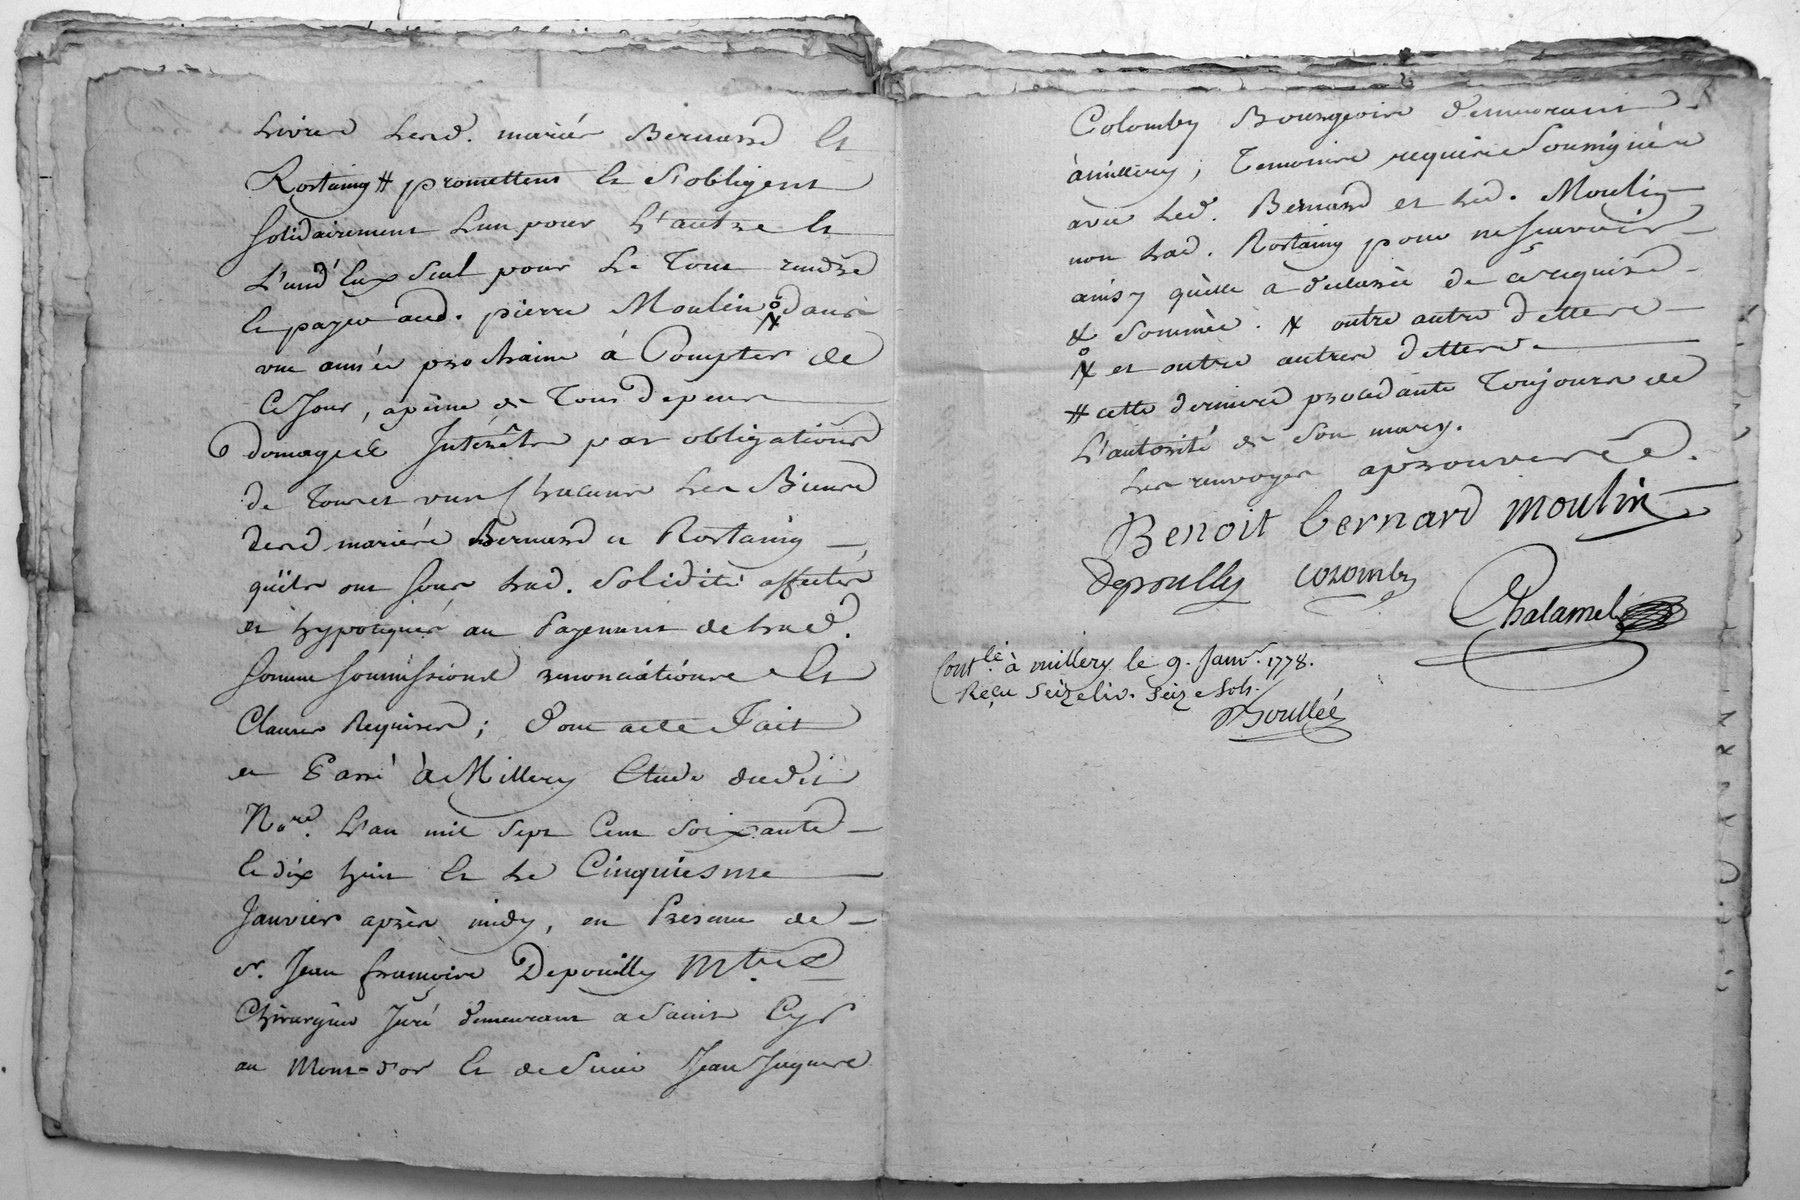 Livres Lesd. mariés Bernard Et
Rostaing # promettent Et S'obligent
Solidairement L'un pour L'autre Et
L'un d'Eux Seul pour Le Tout rendre
Et payer aud. pierre Moulin dans
une année prochaine à Compter de
Ce Jour, apeine de Tous depens
domages Interêts par obligations
de Tous et uns Chacuns Les Biens
desd mariés Bernard et Rostaing
qu'ils ont Sous Lad. Solidité affectés
et hypotequés au Payement de Lad.
Somme Soumissions renonciations Et
Clauses Requises; Dont acte Fait
et Passé à Millery Etude dudit
Nore. L'an mil Sept Cent Soixante
Et dix huit Et Le Cinquiesme
Janvier après midy, en Presence de
sr. Jean françois Depouilly Mtre
Chirurgien Juré demeurant a Saint Cyr
au Mont-d'or Et de Sieur Jean Jaques
Colomby Bourgeois demeurant
à millery, Temoins requis Soussignés
avec Led. Bernard et Led. Moulin
non Lad. Rostaing pour ne Scavoir
ainsy quelle a declaré de ce requise
& Sommée. N outre autre dettes
N et outre autres dettes
# cette derniere procedante Toujours de
L'autorité de Son mary.
Les renvoyes aprouvés
Benoit bernard moulin
Depouilly colomby
Chalamel
Contlé à millery le 9. Janvr. 1778.
Reçu Seize liv. Seize Sols.
Boullée